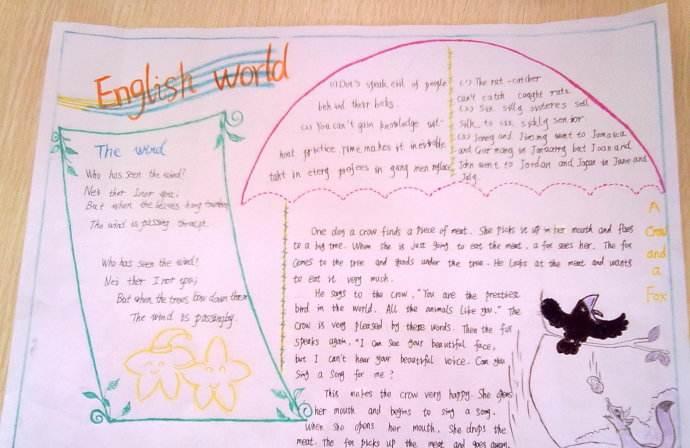 English World
The wind
Who has seen the wind?
Nei ther I nor you;
But when the leaves hang
The wind is passing
Who has seen the wind?
Nei ther I nor you;
But when the trees bow down
The wind is passingby.
(1) Don's speak evil of people
behind their backs.
(2) You can't gain knowledge wit-
hout practice,
(1) The rat-catcher
can't catch caught rats.
(2) Six silly sisters sell
silk to six sickly senior
went to Jamaica
and Germany in but Joan and
John went to Jordan and Japan in June and
July.
A Crow and a Fox
One day a crow finds a piece of meat. She picks it up in her mouth and flies
to a big tree. When she is just going to eat the meat, a fox sees her. The fox
comes to the tree and stands under the tree. He looks at the meat and wants
to eat it very much.
He says to the crow, "You are the prettiest
bird in the world. All the animals like you." The
crow is very pleased by these words. Then the fox
speaks again, "I can see your beautiful face,
but I can't hear your beautiful voice. Can you
sing a song for me?
This makes the crow very happy. She opens
her mouth and begins to sing a song.
When she opens her mouth, she drops the
meat. The fox picks up the meat and goes away.